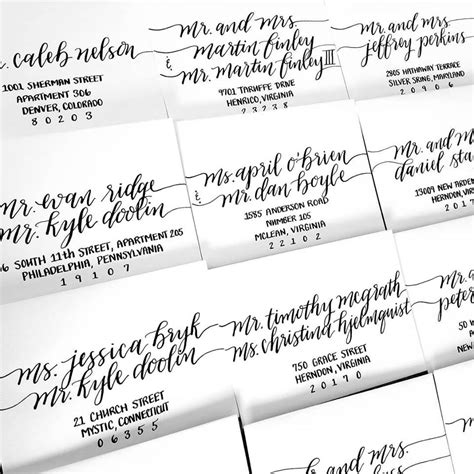 caleb nelson
1001 SHERMAN STREET
APARTMENT 306
DENVER, COLORADO
80203
mr. and mrs.
martin finley
&
mr. martin finley III
9701 TARUFFE DRIVE
HENRICO, VIRGINIA
23238
mr. and mrs.
jeffrey perkins
2805 HATHAWAY TERRACE
SILVER SRING, MARYLAND
20906
mr. evan ridge
mr. kyle doolin
SOUTH 11TH STREET, APARTMENT 205
PHILADELPHIA, PENNSYLVANIA
19107
ms. april o'brien
& mr. dan boyle
1585 ANDERSON ROAD
NUMBER 105
MCLEAN, VIRGINIA
22102
mr. and
daniel
13009 NEW
HERNDON,
201
ms. jessica bryk
mr. kyle doolin
21 CHURCH STREET
MYSTIC, CONNECTICUT
06355
mr. timothy mcgrath
ms. christina hjelmquist
750 GRACE STREET
HERNDON, VIRGINIA
20170
mr. a
peter
50
NEW
and mrs.